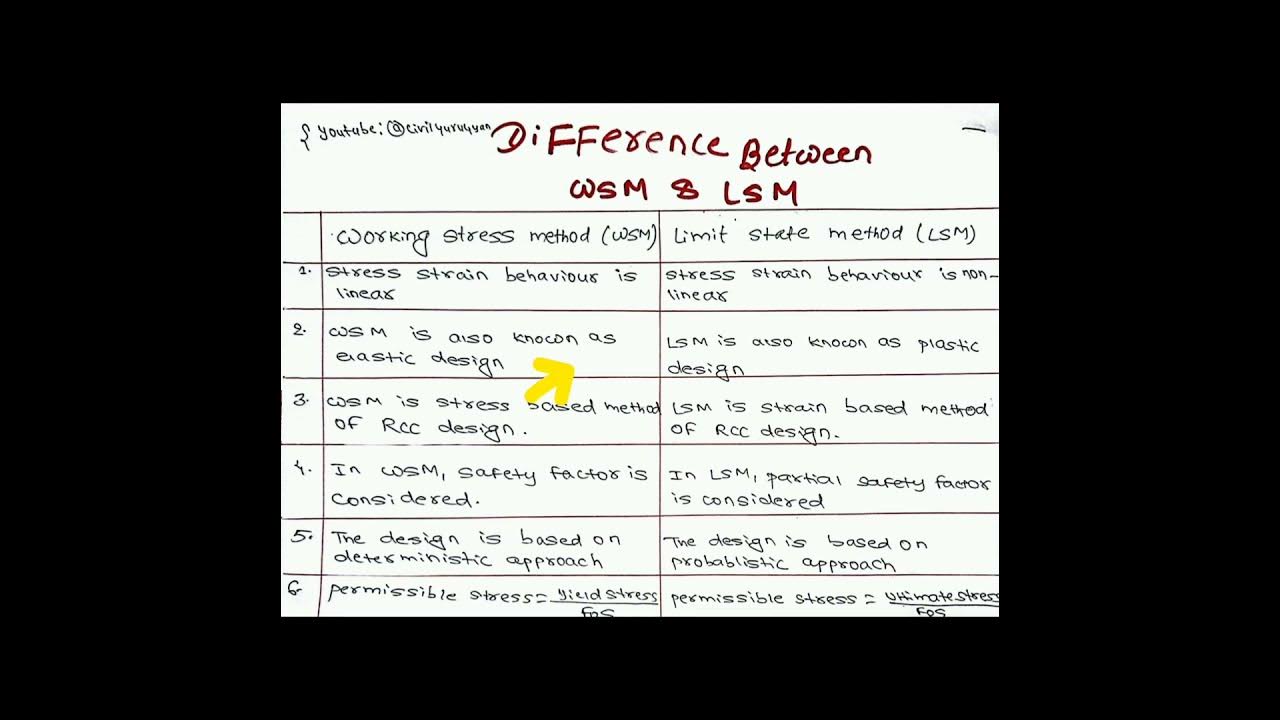 { Youtube: @civilgurugyan
Difference Between
WSM & LSM
Working stress method (WSM)
Limit state method (LSM)
1.
stress strain behaviour is
linear
stress strain behaviour is non-
linear
2.
WSM is also known as
elastic design
LSM is also known as plastic
design
3.
WSM is stress based method
of RCC design.
LSM is strain based method
of RCC design.
4.
In WSM, safety factor is
considered.
In LSM, partial safety factor
is considered
5.
The design is based on
deterministic approach
The design is based on
probablistic approach
6.
permissible stress = yield stress
FOS
permissible stress = Ultimate stress
FOS